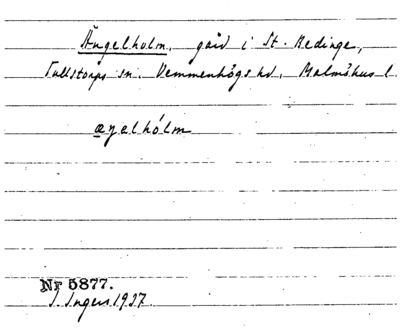 Ängelholm, gård i St. Bedinge,
Tullstorps sn. Vemmenhögs hd. Malmöhus l
æŋəlhólm
Nr 5877.
I. Ingers 1937.